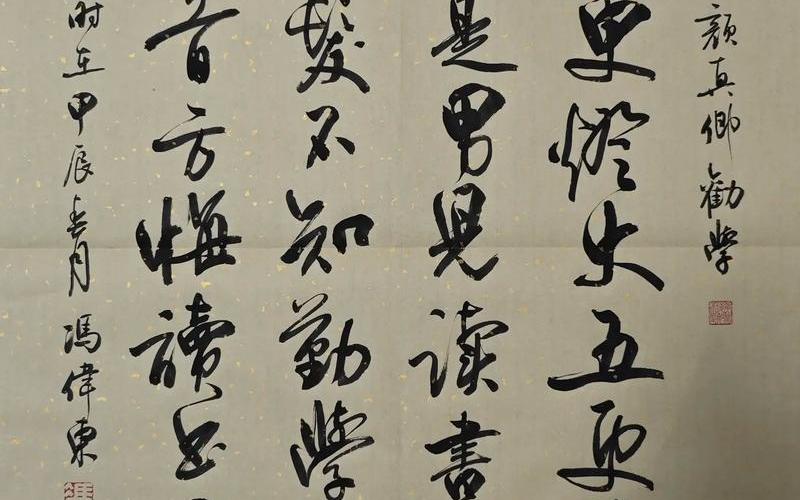 顔真卿勸學
更燈火五更
是男兒读書
髮不知勤學
首方悔讀书
时在甲辰春月馮偉東